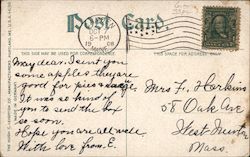 Post Card.
THIS SIDE MAY BE USED FOR CORRESPONDENCE.
THIS SPACE FOR ADDRESS ONLY.
6-PM
1908
My dear. I sent you
some apples they are
good for pies
It was so kind of
you to send the box
so soon.
Hope you are all well.
With love from E.
Mrs F. Harkins
58 Oak Ave
West
Mass.